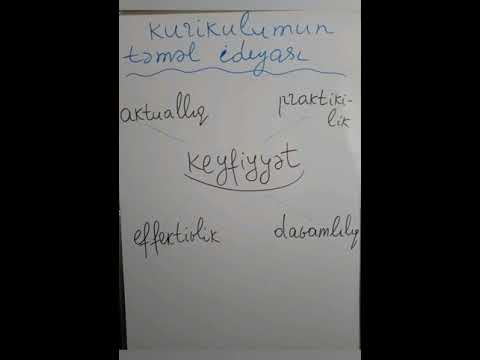 Kurikulumun
təməl ideyası
aktuallıq
praktiki-
lik
Keyfiyyət
effektivlik
davamlılıq